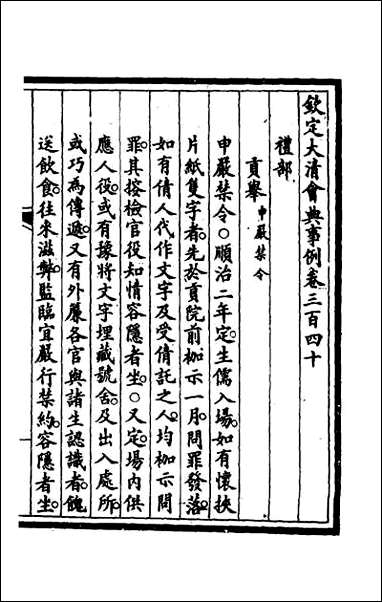 欽定大清會典事例卷三百四十
禮部
貢舉申嚴禁令
申嚴禁令○順治二年定生儒入場。如有懷挾
片紙隻字者。先於貢院前枷示一月。問罪發落。
如有倩人代作文字。及受倩託之人。均枷示問
罪。其搜檢官役知情容隱者坐。○又定。場內供
應人役。或有豫將文字埋藏號舍。及出入處所。
或巧為傳遞。又有外簾各官與諸生認識者。餽
送飲食。往來滋弊。監臨宜嚴行禁約。容隱者坐。